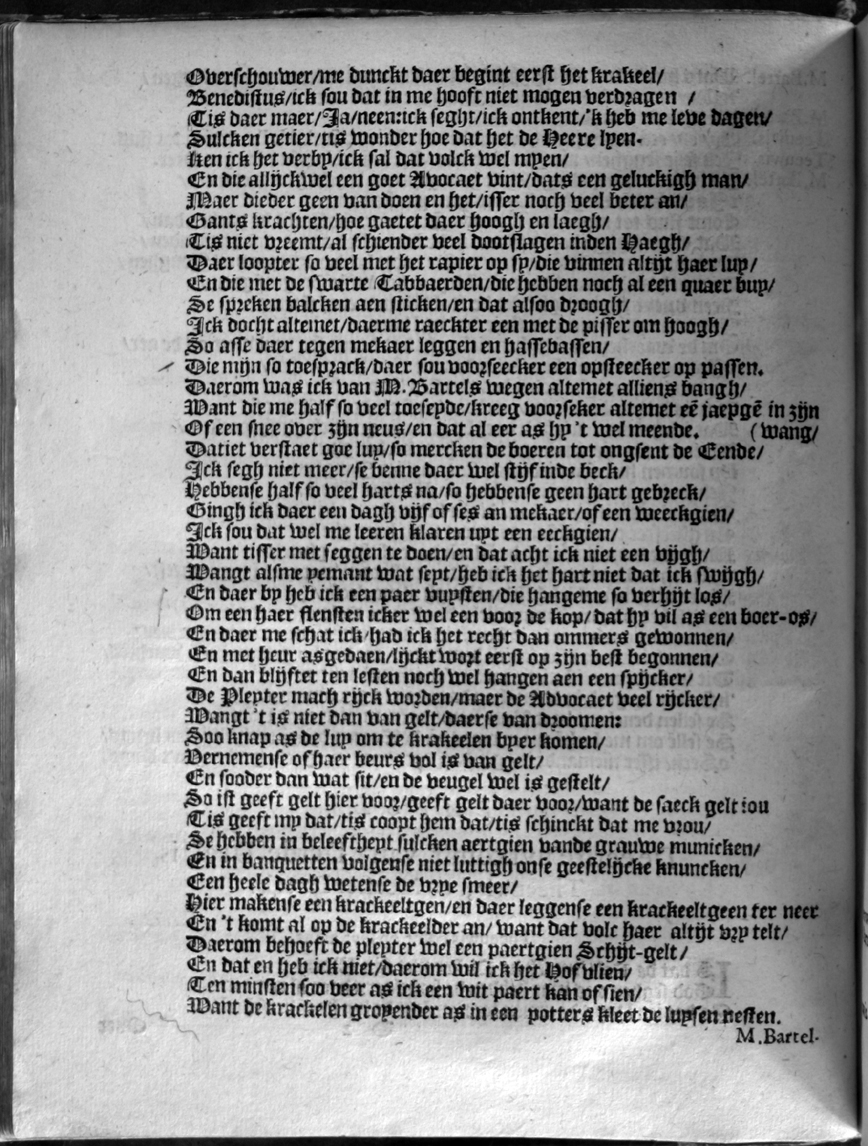 Overschouwer/me dunckt daer begint eerst het krakeel/
Benedistus/ick sou dat in me hooft niet mogen verdragen /
Tis daer maer/Ja/neen:ick seght/ick ontkent/'k heb me leve dagen/
Sulcken getier/tis wonder hoe dat het de Heere lyen.
Ken ick het verby/ick sal dat volck wel myen/
En die allijckwel een goet Advocaet vint/dats een geluckigh man/
Maer dieder geen van doen en het/isser noch veel beter an/
Gants krachten/hoe gaetet daer hoogh en laegh/
Tis niet vreemt/al schiender veel dootslagen inden Haegh/
Daer loopter so veel met het rapier op sy/die vinnen altijt haer luy/
En die met de swarte Tabbaerden/die hebben noch al een quaer buy/
Se spreken balcken aen sticken/en dat alsoo droogh/
Ick docht altemet/daerme raeckter een met de pisser om hoogh/
So asse daer tegen mekaer leggen en hassebassen/
Die mijn so toesprack/daer sou voorseecker een opsteecker op passen.
Daerom was ick van M. Bartels wegen altemet alliens bangh/
Want die me half so veel toeseyde/kreeg voorseker altemet eē jaepgē in zijn
Of een snee over zijn neus/en dat al eer as hy 't wel meende. (wang/
Datiet verstaet goe luy/so mercken de boeren tot ongsent de Eende/
Ick segh niet meer/se benne daer wel stijf inde beck/
Hebbense half so veel harts na/so hebbense geen hart gebreck/
Gingh ick daer een dagh vijf of ses an mekaer/of een weeckgien/
Ick sou dat wel me leeren klaren uyt een eeckgien/
Want tisser met seggen te doen/en dat acht ick niet een vijgh/
Wangt alsme yemant wat seyt/heb ick het hart niet dat ick swijgh/
En daer by heb ick een paer vuysten/die hangeme so verhijt los/
Om een haer flensten icker wel een voor de kop/ dat hy vil as een boer-os/
En daer me schat ick/had ick het recht dan ommers gewonnen/
En met heur asgedaen/lijckt wort eerst op zijn best begonnen/
En dan blijftet ten lesten noch wel hangen aen een spijcker/
De Pleyter mach rijck worden/maer de Advocaet veel rijcker/
Wangt 't is niet dan van gelt/daerse van droomen:
Soo knap as de luy om te krakeelen byer komen/
Vernemense of haer beurs vol is van gelt/
En sooder dan wat sit/en de veugel wel is gestelt/
So ist geeft gelt hier voor/geeft gelt daer voor/want de saeck gelt jou
Tis geeft my dat/tis coopt hem dat/tis schinckt dat me vrou/
Se hebben in beleeftheyt sulcken aertgien vande grauwe municken/
En in banquetten volgense niet luttigh onse geestelijcke knuncken/
Een heele dagh wetense de vrye smeer/
Hier makense een krackeeltgen/en daer leggense een krackeeltgeen ter neer
En 't komt al op de krackeelder an/ want dat volc haer altijt vry telt/
Daerom behoeft de pleyter wel een paertgien Schijt-gelt/
En dat en heb ick niet/daerom wil ick het Hof vlien/
Ten minsten soo veer as ick een wit paert kan of sien/
Want de krackelen groyender as in een potters kleet de luysen nesten.
M. Bartel-